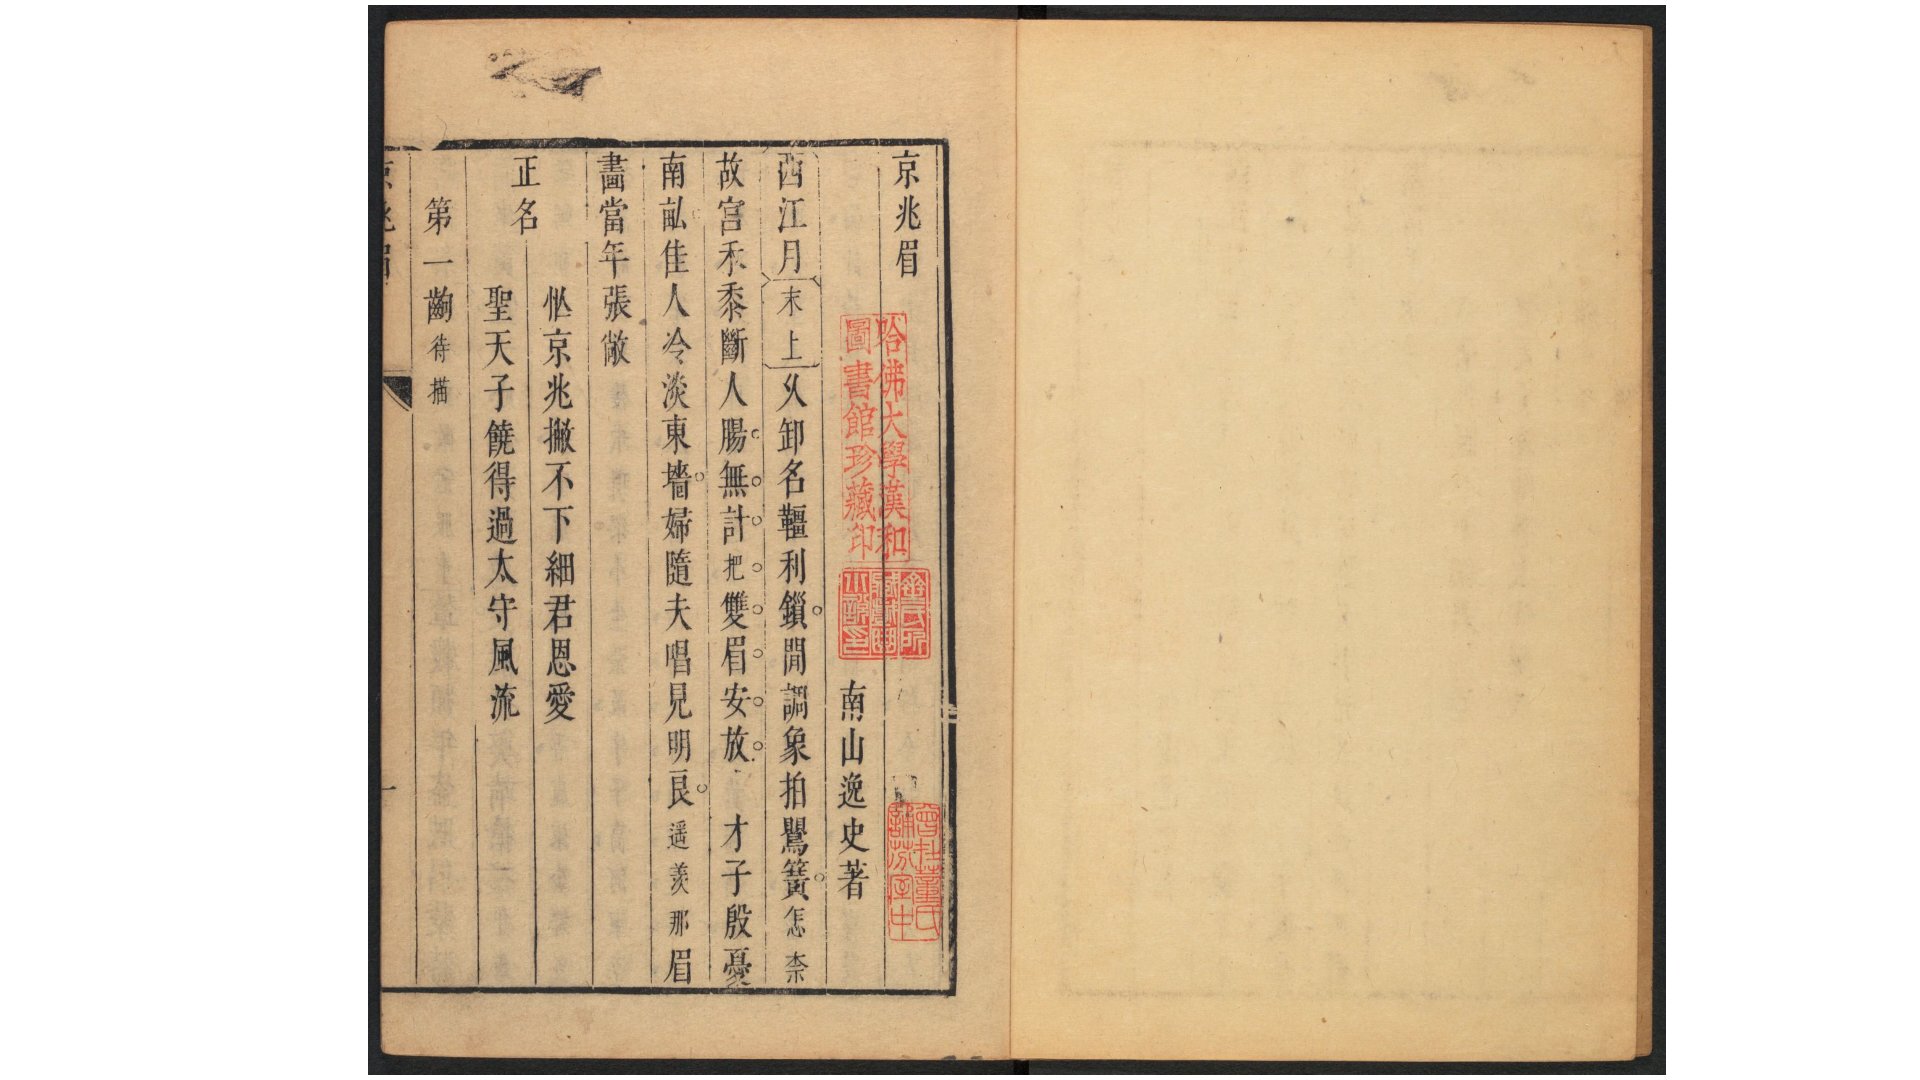 京兆眉
南山逸史著
西江月
末上
乆卸名韁利鎖閒調象拍鸎簧怎柰
故宮禾黍斷人腸無計把雙眉安放才子殷憂
南畝佳人冷淡東墻婦隨夫唱見明良遥羨那眉
畵當年張敞
正名
㤰京兆撇不下細君恩愛
聖天子饒得過太守風流
第一齣待描
哈佛大學漢和
圖書館珍藏印